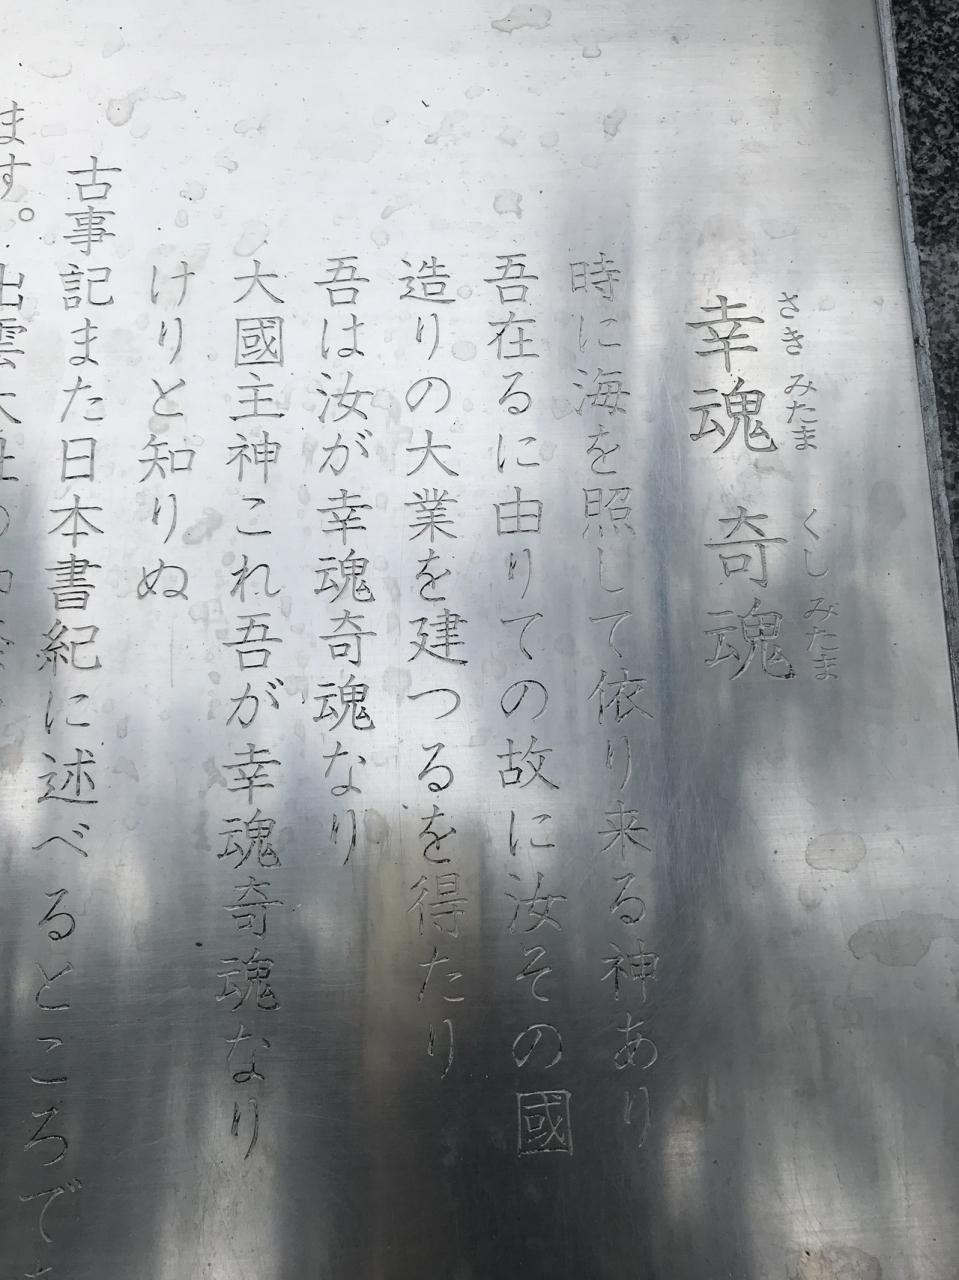 幸魂 奇魂
さき みたま くし みたま
時に海を照して依り来る神あり
吾在るに由りての故に汝その國
造りの大業を建つるを得たり
吾は汝が幸魂奇魂なり
大國主神これ吾が幸魂奇魂なり
けりと知りぬ
古事記また日本書紀に述べるところで
ます。出雲大社の